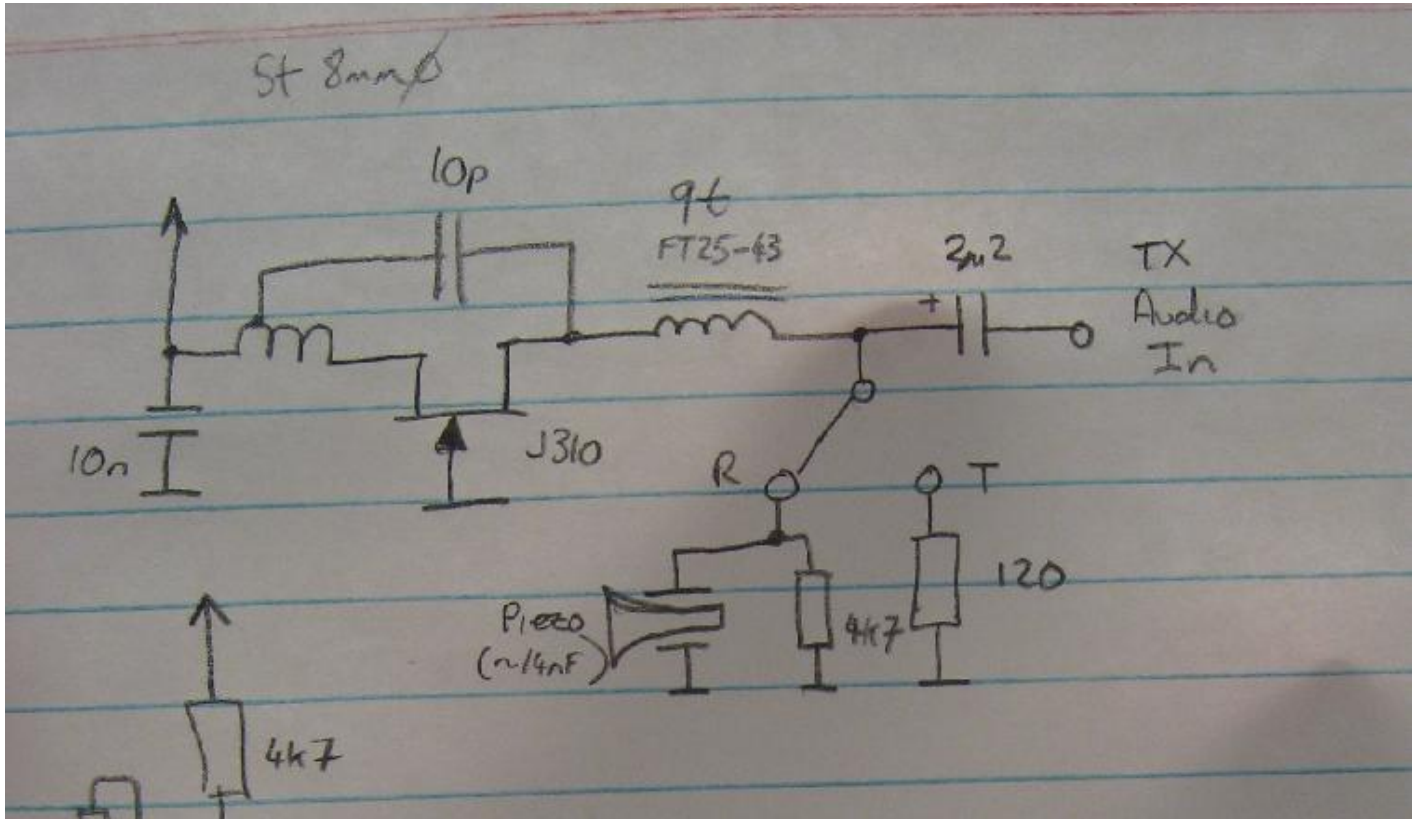 5t 8mmø
10p
9t
FT25-43
2µ2
+
TX
Audio
In
10n
J310
R
T
Piezo
(~14nF)
4k7
120
4k7